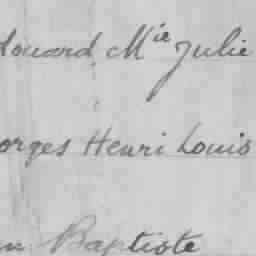 douard Mie Julie
orges Henri Louis
n Baptiste